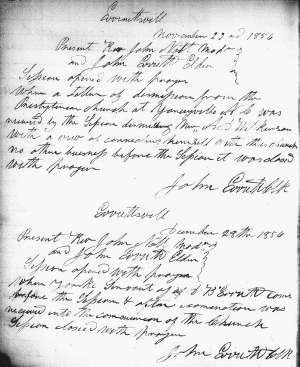 Everittsvill
November 22nd 1856
Present Rev John N Modr
and John Everitt Elder
Session opened with prayer
when a Letter of dismission from the
Presbyterian church at Yanceyville N C was
received by the Session dismissing Mrs
with a view of connecting themselves with this church
no other business before the Session it was closed
with prayer
John Everitt Clk
Everittsvill
December 28th 1856
Present Rev John N Modr
and John Everitt Elder
Session opened with prayer
when Servant of B Everitt come
before the Session & after examination was
received into the communion of the Church
Session closed with prayer
John Everitt Clk